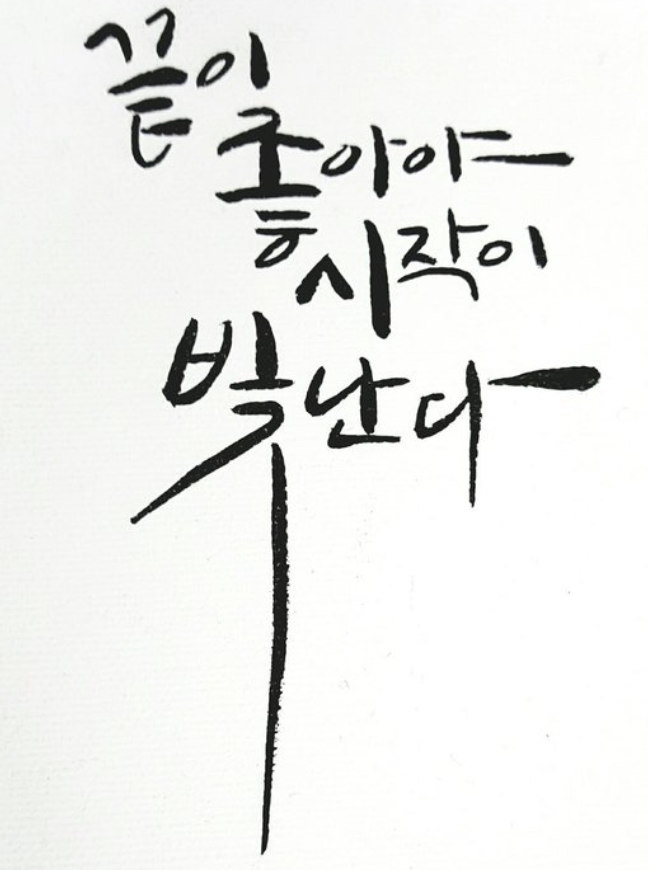 끝이
좋아야
시작이
빛난다